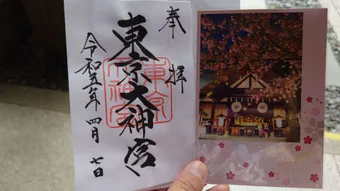 奉拝
東京大神宮
令和五年四月七日
東京大神宮